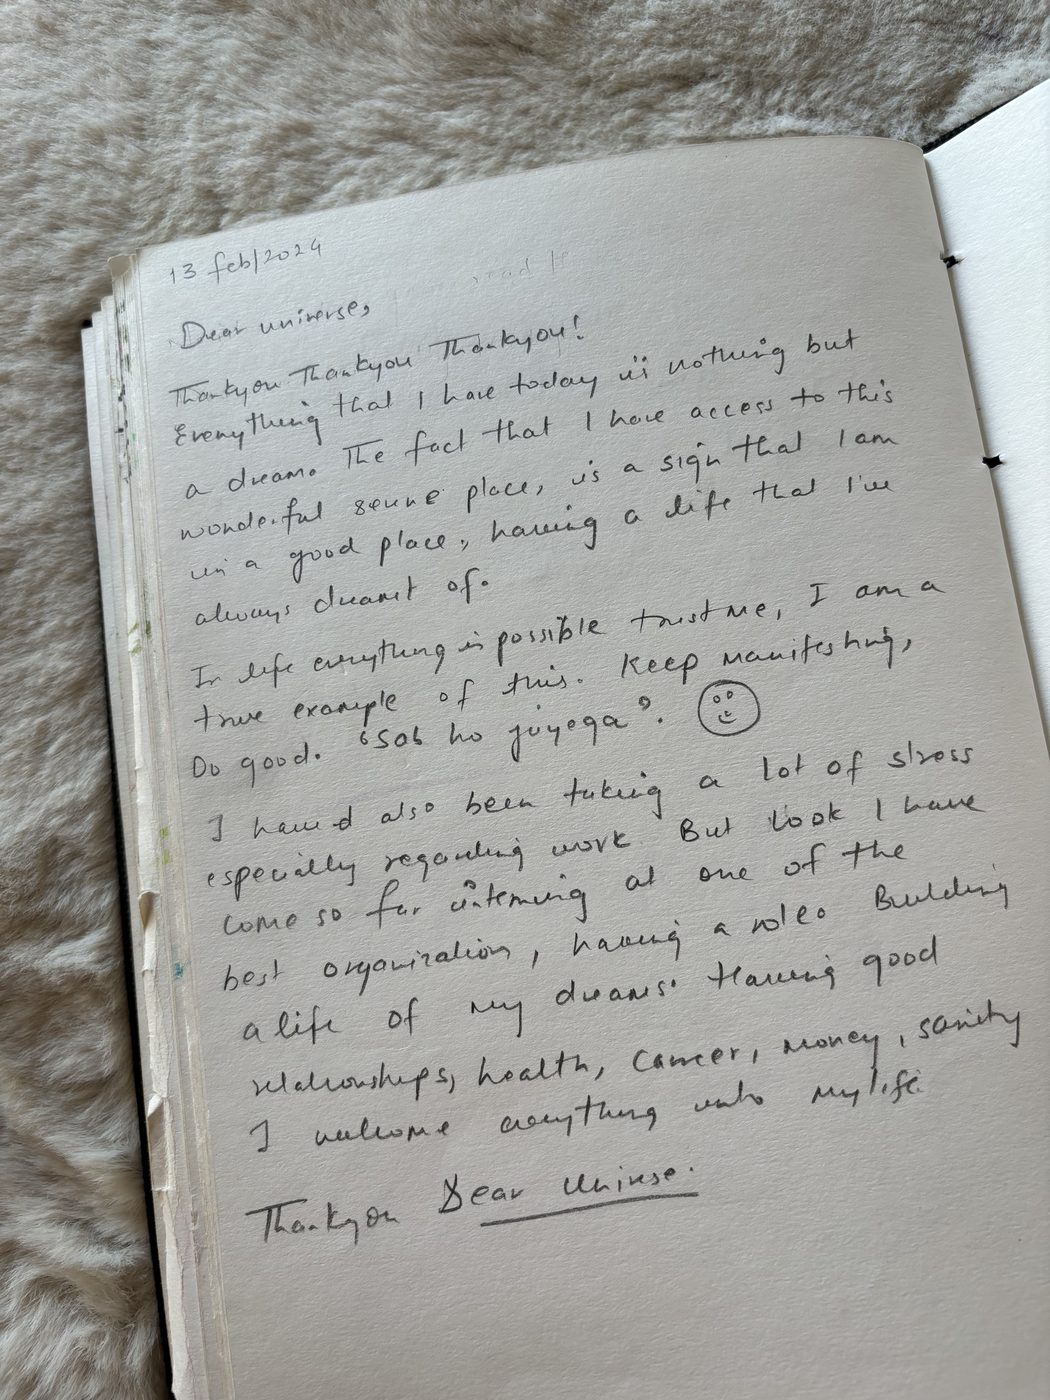 13 feb/2024
Dear universe,
Thankyou Thankyou Thankyou!
Everything that I have today is nothing but
a dream. The fact that I have access to this
wonderful serene place, is a sign that I am
in a good place, having a life that I've
always dreamt of.
In life everything is possible trust me, I am a
true example of this. Keep manifesting,
Do good. "Sab ho jayega".
I have also been taking a lot of stress
especially regarding work. But look I have
come so far interning at one of the
best organization, having a role. Building
a life of my dreams. Having good
relationships, health, career, money, sanity
I welcome everything into my life
Thankyou Dear Universe.